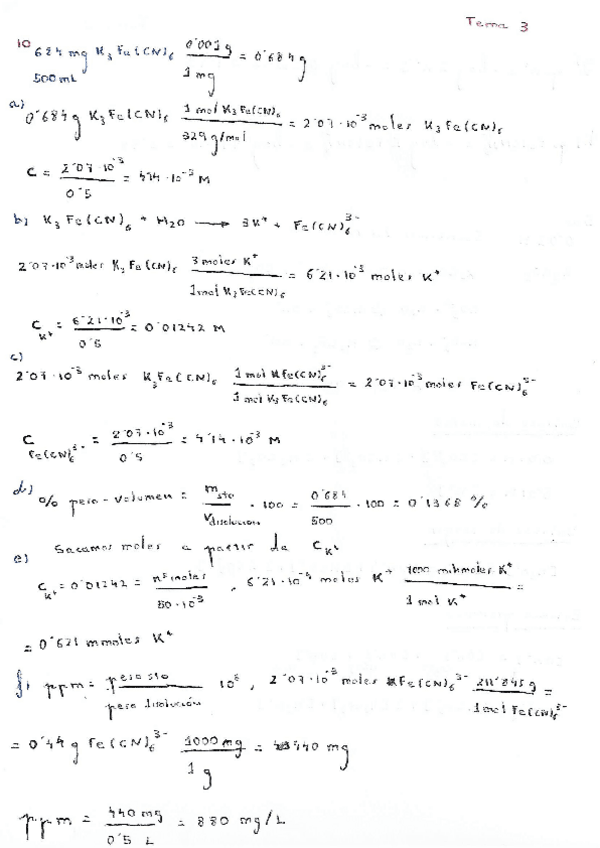 Tema 3
10 684 mg K3Fe(CN)6 0'001g / 1 mg = 0'684g
500mL
a)
0'684g K3Fe(CN)6 1 mol K3Fe(CN)6 / 329 g/mol = 2'07·10^-3 moles K3Fe(CN)6
C = 2'07·10^-3 / 0'5 = 4'14·10^-3 M
b) K3Fe(CN)6 + H2O → 3K+ + Fe(CN)6^3-
2'07·10^-3 moles K3Fe(CN)6 3 moles K+ / 1 mol K3Fe(CN)6 = 6'21·10^-3 moles K+
C K+ = 6'21·10^-3 / 0'5 = 0'01242 M
c)
2'07·10^-3 moles K3Fe(CN)6 1 mol Fe(CN)6^3- / 1 mol K3Fe(CN)6 = 2'07·10^-3 moles Fe(CN)6^3-
C Fe(CN)6^3- = 2'07·10^-3 / 0'5 = 4'14·10^-3 M
d) % peso-volumen = m sto / V disolución · 100 = 0'684 / 500 · 100 = 0'1368 %
e) Sacamos moles a partir de C K+
C K+ = 0'01242 = nº moles / 50·10^-3 , 6'21·10^-4 moles K+ 1000 milimoles K+ / 1 mol K+ =
= 0'621 mmoles K+
f) ppm = peso sto / peso disolución 10^6 , 2'07·10^-3 moles Fe(CN)6^3- 211'845g / 1 mol Fe(CN)6^3- =
= 0'44 g Fe(CN)6^3- 1000 mg / 1 g = 440 mg
ppm = 440 mg / 0'5 L = 880 mg/L